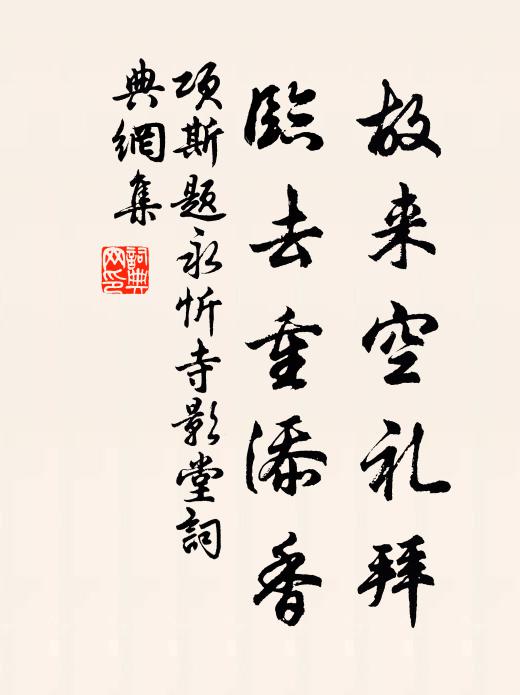 故来空礼拜
臨去重添香
项斯题永忻寺影堂詞
典網集
詞典網印